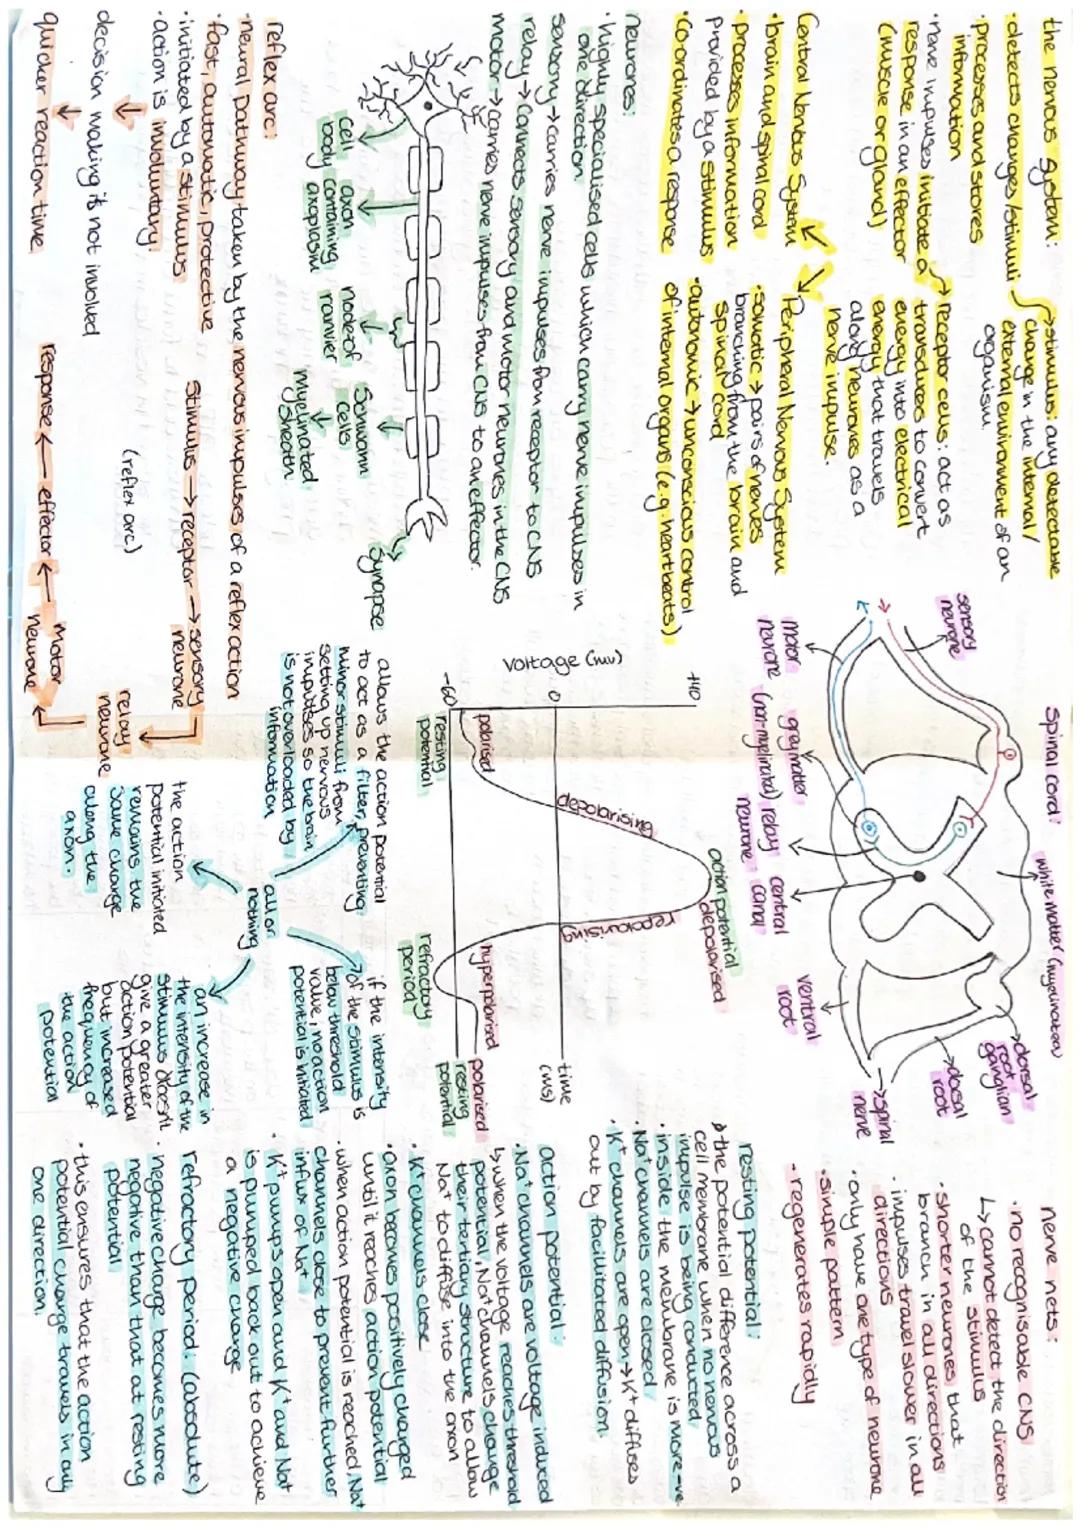 the nervous system:
· detects changes/stimuli
· processes and stores
information
· nerve impulses initiate a
response in an effector
(muscle or gland)
→ stimulus: any detectable
change in the internal/
external environment of an
organism
→ receptor cells: act as
transducers to convert
energy into electrical
energy that travels
along neurones as a
nerve impulse.
Central Nervous System
· brain and spinal cord
· processes information
provided by a stimulus
· Co-ordinates a response
Peripheral Nervous System
· somatic → pairs of nerves
branching from the brain and
spinal cord
· autonomic → unconscious control
of internal organs (e.g. heartbeats)
neurones:
· highly specialised cells which carry nerve impulses in
one direction
sensory → carries nerve impulses from receptor to CNS
relay → Connects sensory and motor neurones in the CNS
motor → carries nerve impulses from CNS to an effector.
cell
body
axon
containing
axoplasm
node of
ranvier
Schwann
cells
Myelinated
sheath
Synapse
reflex arc:
· neural pathway taken by the nervous impulses of a reflex action
· fast, automatic, protective
· initiated by a stimulus
· action is involuntary.
decision making is not involved
quicker reaction time
Stimulus → receptor → sensory
neurone
relay
neurone
(reflex arc)
response ← effector ← motor
neurone
spinal cord:
sensory
neurone
white matter (myelinated)
dorsal
root
ganglion
dorsal
root
spinal
nerve
motor
neurone
grey matter
(non-myelinated)
relay
neurone
central
canal
ventral
root
voltage (mv)
+40
0
-60
polarised
resting
potential
depolarising
action potential
depolarised
repolarising
hyperpolarised
refractory
period
polarised
resting
potential
time
(ms)
all or
nothing
allows the action potential
to act as a filter, preventing
minor stimuli from
setting up nervous
impulses so the brain
is not overloaded by
information
if the intensity
of the stimulus is
below threshold
value, no action
potential is initiated
the action
potential initiated
remains the
same charge
along the
axon.
an increase in
the intensity of the
stimulus doesn't
give a greater
action potential
but increased
frequency of
the action
potential
nerve nets:
· no recognisable CNS
↳ cannot detect the direction
of the stimulus
· shorter neurones that
branch in all directions
· impulses travel slower in all
directions
· only have one type of neurone
· simple pattern
- regenerates rapidly
resting potential:
→ the potential difference across a
cell membrane when no nervous
impulse is being conducted
· inside the membrane is more -ve
· Na⁺ channels are closed
· K⁺ channels are open, → K⁺ diffuses
out by facilitated diffusion
action potential:
· Na⁺ channels are voltage induced
↳ when the voltage reaches threshold
potential, Na⁺ channels change
their tertiary structure to allow
Na⁺ to diffuse into the axon
· K⁺ channels close
· axon becomes positively charged
until it reaches action potential
· when action potential is reached, Na⁺
channels close to prevent further
influx of Na⁺
· K⁺ pumps open and K⁺ and Na⁺
is pumped back out to achieve
a negative charge
refractory period: (absolute)
· negative charge becomes more
negative than that at resting
potential
· this ensures that the action
potential charge travels in only
one direction.